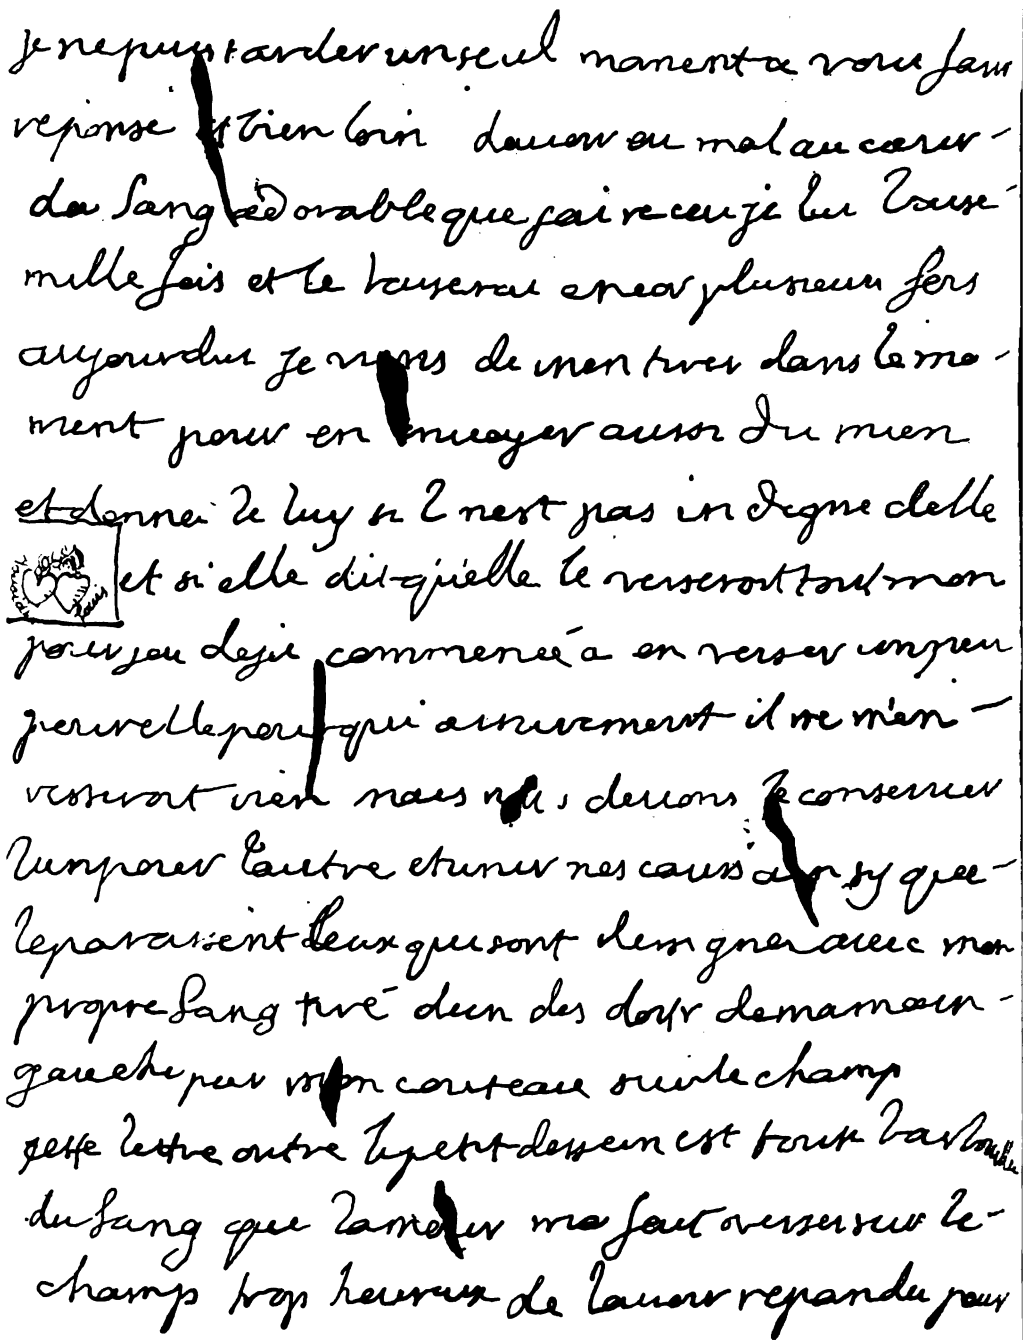 je ne puis tarder un seul moment a vous faire
reponse et bien loin dauoir eu mal au coeur
du sang adorable que jai receu je lui baisé
mille fois et le baiserai encor plusieurs fois
aujourdui je viens de men tirer dans le mo-
ment pour en enuoyer aussi du mien
et donnei le luy si l nest pas indigne delle
et si elle dit qu'elle le verseroit tout mon
pour jai deja commencé a en verser un peu
pour elle pour qui assurement il ne m'en
resteroit rien mais nous deuons le conseruer
lun pour lautre et unir nos coeurs ainsy que
le paraissent deux qui sont dessignez auec mon
propre sang tiré dun des doits de ma main
gauche par mon couteau sur le champ
cette lettre outre le petit dessein est toute barbouillée
du sang que lamour ma fait verser sur le
champ trop heureux de lauoir repandu pour
Louis